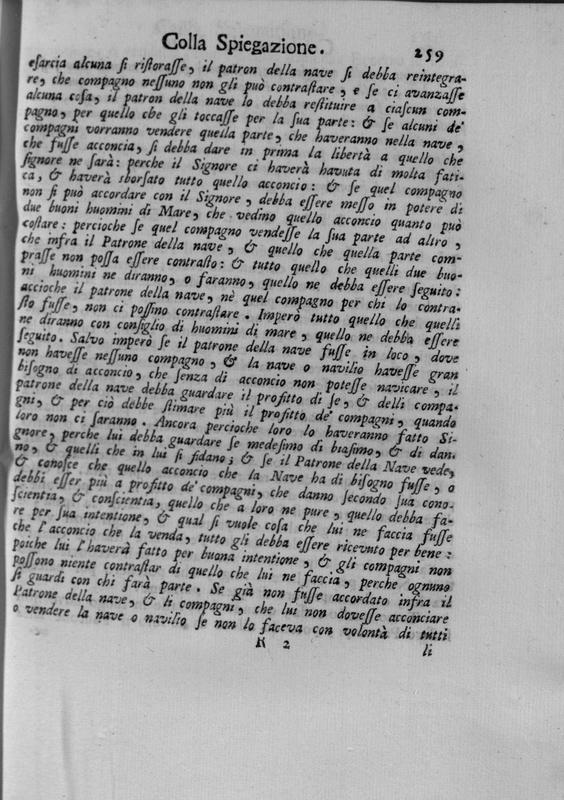 Colla Spiegazione. 259
eſarcia alcuna ſi riſtoraſſe, il patron della nave ſi debba reintegra-
re, che compagno neſſuno non gli può contraſtare, e ſe ci avanzaſſe
alcuna coſa, il patron della nave lo debba reſtituire a ciaſcun com-
pagno, per quello che gli toccaſſe per la ſua parte: & ſe alcuni de'
compagni vorranno vendere quella parte, che haveranno nella nave,
che fuſſe acconcia, ſi debba dare in prima la libertà a quello che
ſignore ne ſarà: perche il Signore ci haverà havuta di molta fati-
ca, & haverà sborſato tutto quello acconcio: & ſe quel compagno
non ſi può accordare con il Signore, debba eſſere meſſo in potere di
due buoni huomini di Mare, che vedino quello acconcio quanto può
coſtare: percioche ſe quel compagno vendeſſe la ſua parte ad altro,
che infra il Patrone della nave, & quello che quella parte com-
praſſe non poſſa eſſere contraſto: & tutto quello che quelli due buo-
ni huomini ne diranno, o faranno, quello ne debba eſſere ſeguito:
accioche il patrone della nave, nè quel compagno per chi lo contra-
ſto fuſſe, non ci poſſino contraſtare. Imperò tutto quello che quelli
ne diranno con conſiglio di huomini di mare, quello ne debba eſſere
ſeguito. Salvo imperò ſe il patrone della nave fuſſe in loco, dove
non haveſſe neſſuno compagno, & la nave o navilio haveſſe gran
biſogno di acconcio, che ſenza di acconcio non poteſſe navicare, il
patrone della nave debba guardare il profitto di ſe, & delli compa-
gni, & per ciò debbe ſtimare più il profitto de' compagni, quando
loro non ci ſaranno. Ancora percioche loro lo haveranno fatto Si-
gnore, perche lui debba guardare ſe medeſimo di biaſimo, & di dan-
no, & quelli che in lui ſi fidano; & ſe il Patrone della Nave vede,
& conoſce che quello acconcio che la Nave ha di biſogno fuſſe, o
debbi eſſer più a profitto de' compagni, che danno ſecondo ſua cono-
ſcientia, & conſcientia, quello che a loro ne pure, quello debba fa-
re per ſua intentione, & qual ſi vuole coſa che lui ne faccia fuſſe
che l'acconcio che la venda, tutto gli debba eſſere ricevuto per bene:
poiche lui l'haverà fatto per buona intentione, & gli compagni non
poſſono niente contraſtar di quello che lui ne faccia, perche ognuno
ſi guardi con chi farà parte. Se già non fuſſe accordato infra il
Patrone della nave, & li compagni, che lui non doveſſe acconciare
o vendere la nave o navilio ſe non lo faceva con volontà di tutti
R 2 li